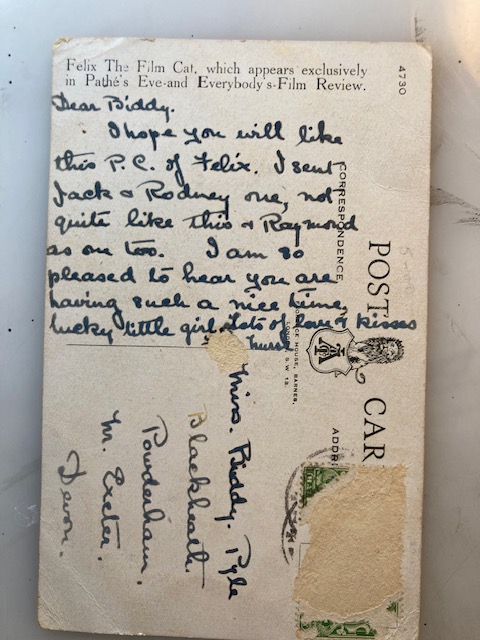 Felix The Film Cat, which appears exclusively
in Pathé's Eve-and Everybody's-Film Review.
4730
Dear Biddy.
I hope you will like
this P.C. of Felix. I sent
Jack & Rodney one, not
quite like this & Raymond
as one too. I am so
pleased to hear you are
having such a nice time,
lucky little girl. Lots of love & kisses
Nurse
CORRESPONDENCE
HOUSE, BARNES,
LONDON, S.W. 13.
POST CAR
ADDR
Miss. Biddy. Pyle
Blackheath.
Powderham.
Nr. Exeter.
Devon.